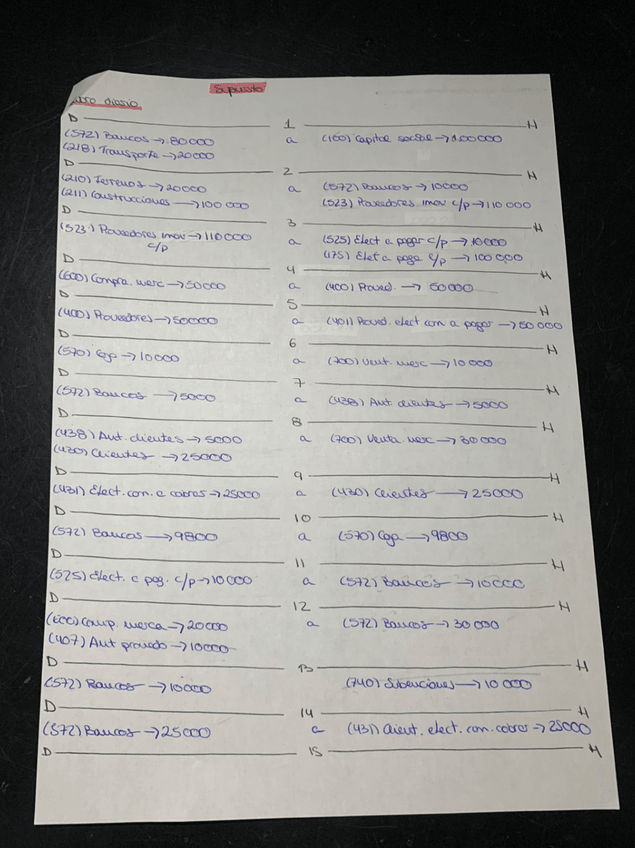 Supuesto
Libro diario
D 1 H
(572) Bancos → 80000 a (100) Capital social → 100000
(218) Transporte → 20000
D 2 H
(210) Terrenos → 20000 a (572) Bancos → 10000
(211) Construcciones → 100 000 (523) Proveedores imov c/p → 110 000
D 3 H
(523) Proveedores imov → 110000 a (525) Elect a pagar c/p → 10000
c/p (175) Elet a paga l/p → 100 000
D 4 H
(600) Compra merc → 50000 a (400) Proved. → 50000
D 5 H
(400) Proveedores → 50000 a (401) Proved. elect com a pagar → 50 000
D 6 H
(570) Caja → 10000 a (700) Vent. merc → 10 000
D 7 H
(572) Bancos → 5000 a (438) Ant clientes → 5000
D 8 H
(438) Ant. clientes → 5000 a (700) Venta merc → 30 000
(430) Clientes → 25000
D 9 H
(431) Elect. com. a cobrar → 25000 a (430) Clientes → 25000
D 10 H
(572) Bancos → 9800 a (570) Caja → 9800
D 11 H
(525) Elect. a pag. c/p → 10000 a (572) Bancos → 10000
D 12 H
(600) Comp. merca → 20000 a (572) Bancos → 30 000
(407) Ant provedo → 10000
D 13 H
(572) Bancos → 10000 (740) Subenciones → 10 000
D 14 H
(572) Bancos → 25000 a (431) Client. elect. com. cobrar → 25000
D 15 H